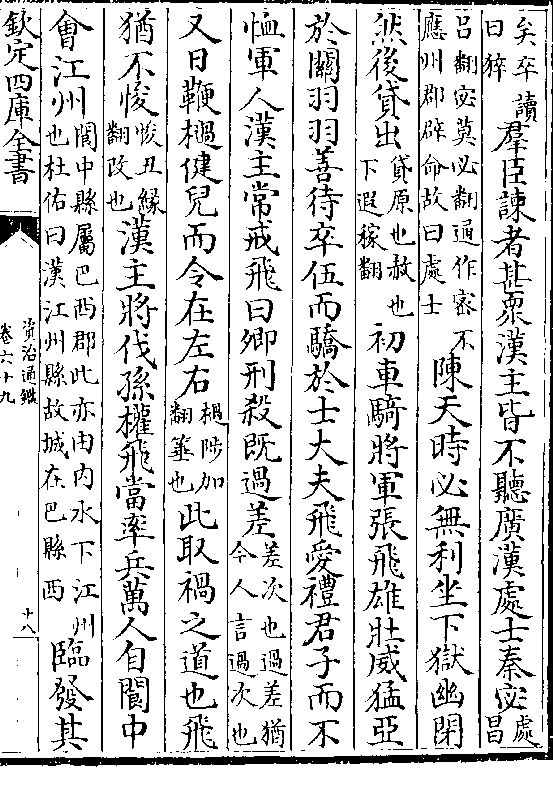 矣卒讀曰猝羣臣諫者甚衆漢主皆不聽廣漢處士秦宓處昌
呂翻宓莫必翻通作密不應州郡辟命故曰處士陳天時必無利坐下獄幽閉
然後貸出貸原也赦也下遐稼翻初車騎將軍張飛雄壯威猛亞
於關羽羽善待卒伍而驕於士大夫飛愛禮君子而不
恤軍人漢主常戒飛曰卿刑殺既過差差次也過差猶今人言過次也
又日鞭檛健兒而令在左右檛陟加翻箠也此取禍之道也飛
猶不悛悛丑縁翻改也漢主將伐孫權飛當率兵萬人自閬中
會江州閬中縣屬巴西郡此亦由内水下江州也杜佑曰漢江州縣故城在巴縣西臨發其
欽定四庫全書
資治通鑑
卷六十九
十八